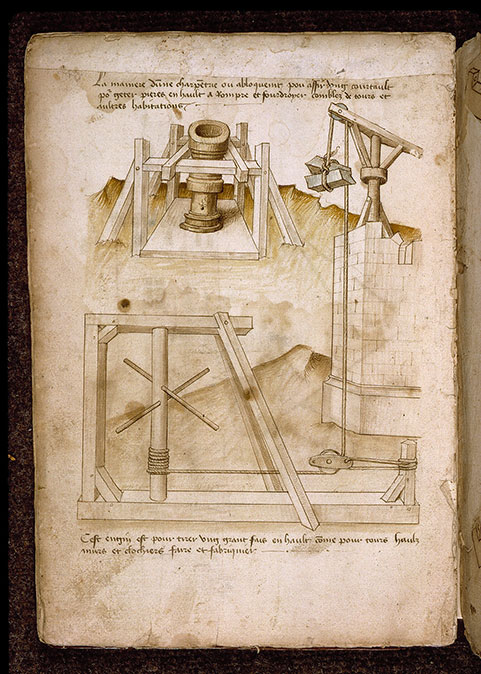 La maniere dune charpētre ou abloquemt pou assir ung courtault
po' geter pieres en hault a Rompre et fourdroyer combles de tours et
aultres habitations
Cest engin est pour tirer ung grant fais en hault cōme pour tours haulz
murs et clochiers faire et fabriquier